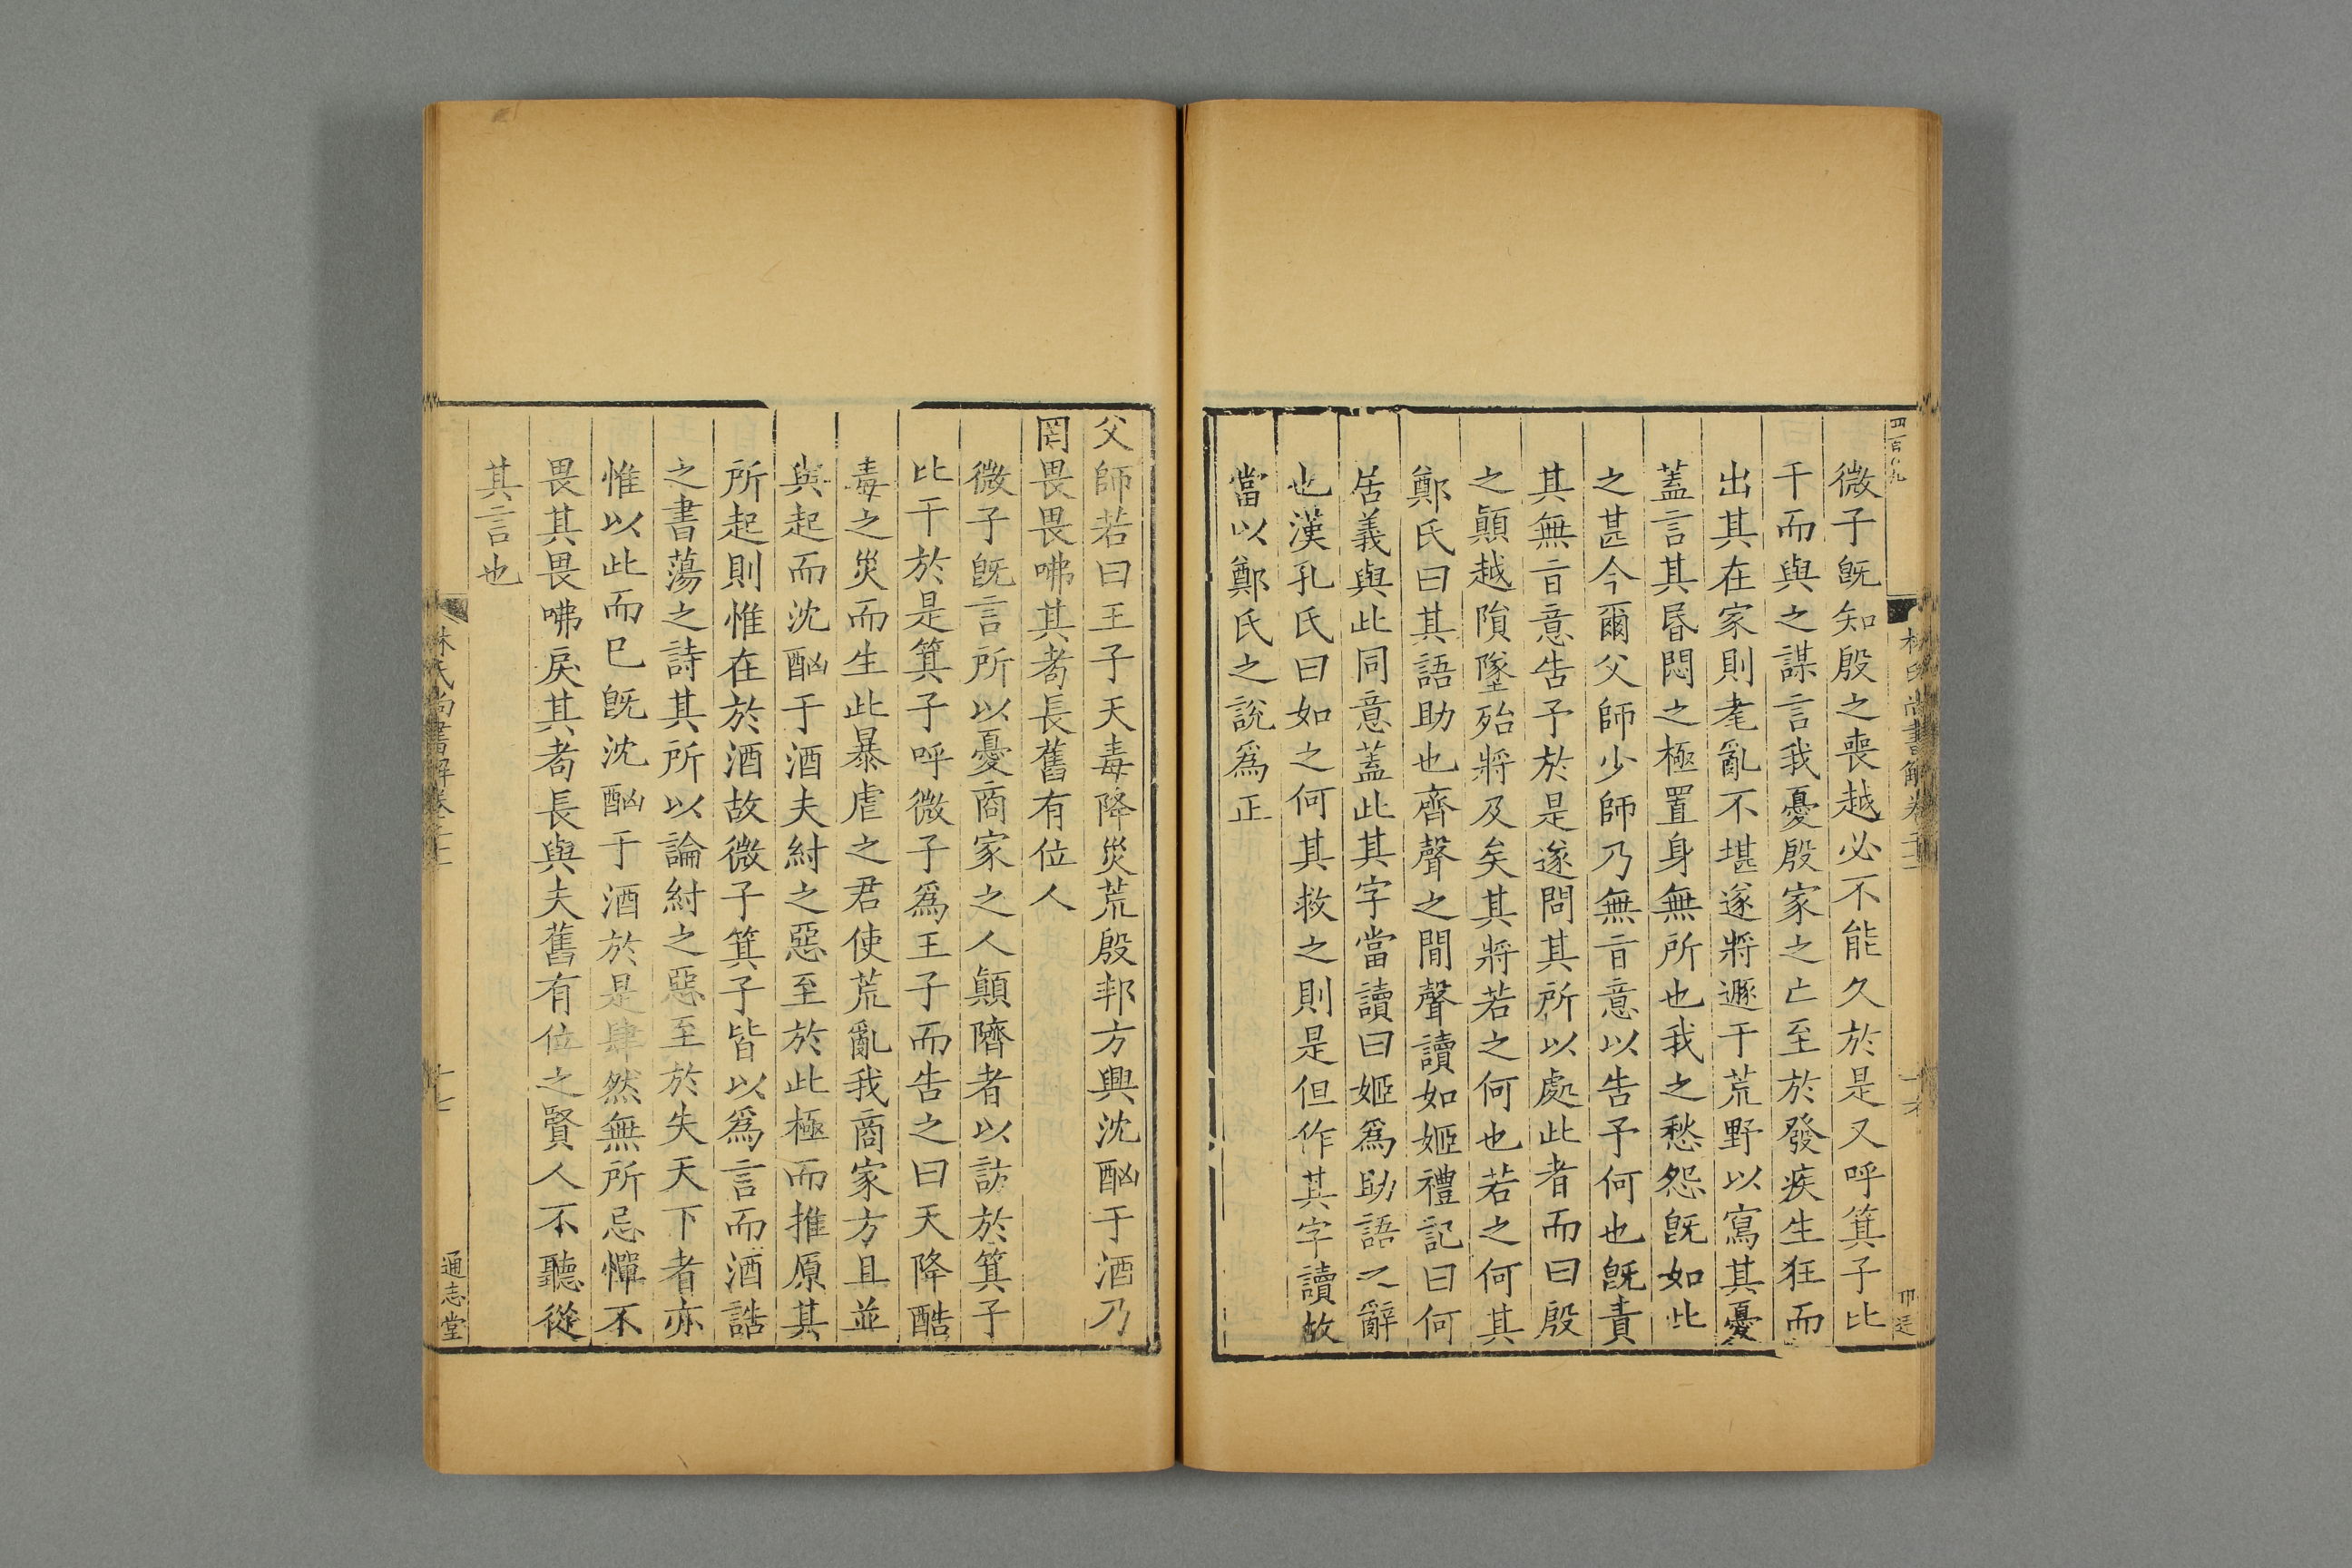 微子旣知殷之喪越必不能久於是又呼箕子比
干而與之謀言我憂殷家之亡至於發疾生狂而
出其在家則耄亂不堪遂將遯于荒野以寫其憂
蓋言其昬悶之極置身無所也我之愁怨旣如此
之甚今爾父師少師乃無㫖意以告予何也旣責
其無㫖意告予於是遂問其所以處此者而曰殷
之顚越隕墜殆將及矣其將若之何也若之何其
鄭氏曰其語助也齊聲之間聲讀如姬禮記曰何
居義與此同意蓋此其字當讀曰姬爲助語之辭
也漢孔氏曰如之何其救之則是但作其字讀故
當以鄭氏之說爲正
父師若曰王子天毒降災荒殷邦方興沈酗于酒乃
罔畏畏咈其耇長舊有位人
微子旣言所以憂商家之人顚隮者以訪於箕子
比干於是箕子呼微子爲王子而告之曰天降酷
毒之災而生此暴虐之君使荒亂我商家方且並
與起而沈酗于酒夫紂之惡至於此極而推原其
所起則惟在於酒故微子箕子皆以爲言而酒誥
之書蕩之詩其所以論紂之惡至於失天下者亦
惟以此而已旣沈酗于酒於是肆然無所忌憚不
畏其畏咈戾其耇長與夫舊有位之賢人不聽從
其言也
林氏尚書解卷二十一
十七
通志堂